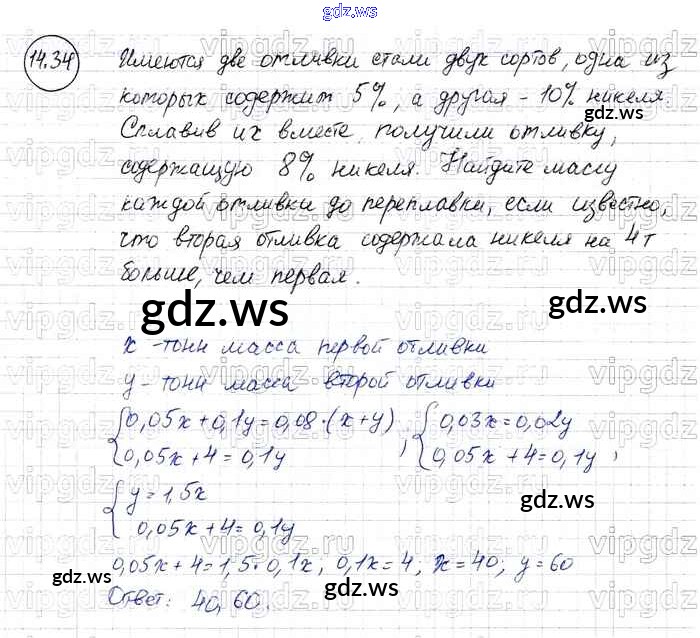 gdz.ws
14.34 Имеются две отливки стали двух сортов, одна из
которых содержит 5%, а другая - 10% никеля.
Сплавив их вместе получили отливку,
содержащую 8% никеля. Найдите массу
каждой отливки до переплавки, если известно,
что вторая отливка содержала никеля на 4т
больше, чем первая.
x - тонн масса первой отливки
y - тонн масса второй отливки
{0,05x + 0,1y = 0,08·(x+y) , {0,03x = 0,02y
0,05x + 4 = 0,1y 0,05x + 4 = 0,1y ,
{y = 1,5x
0,05x + 4 = 0,1y
0,05x + 4 = 1,5·0,1x; 0,1x = 4; x = 40; y = 60
Ответ: 40, 60.